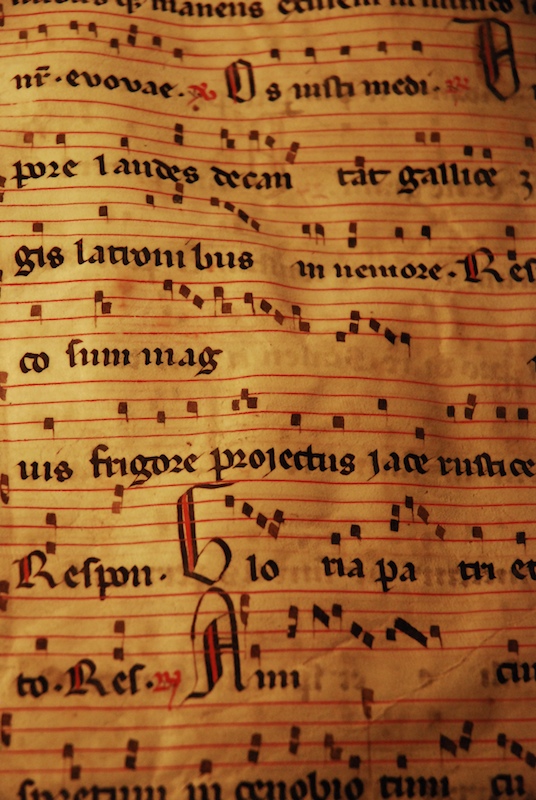 manens
nr̄· evovae· Os iusti medi·
pore laudes decan tat gallice
gis latronibus in nemore· Res
co sum mag
uis frigore proiectus iace rustice
Respon· Glo ria pa tri et
to· Res· Ami cu
spretum in cenobio tum cu